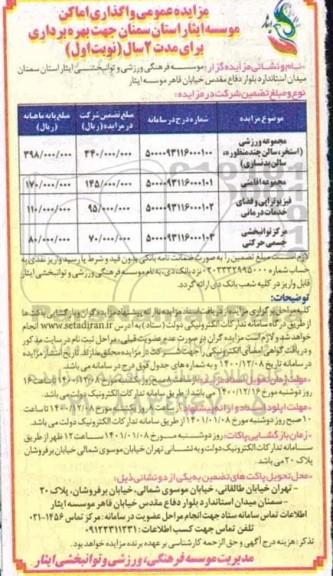 مزایده عمومی واگذاری اماکن
موسسه ایثار استان سمنان جهت بهره برداری
برای مدت ۲ سال (نوبت اول)
نام و نشانی مزایده گزار: موسسه فرهنگی ورزشی و توانبخشی ایثار استان سمنان
میدان استاندارد بلوار دفاع مقدس خیابان قاهر موسسه ایثار
نوع و مبلغ تضمین شرکت در مزایده:
موضوع مزایده شماره درج در سامانه مبلغ تضمین شرکت در مزایده (ریال) مبلغ پایه ماهیانه (ریال)
مجموعه ورزشی (استخر، سالن چندمنظوره، سالن بدنسازی) ۵۰۰۰۰۹۳۱۱۶۰۰۰۱۰۰ ۳۴۰/۰۰۰/۰۰۰ ۳۹۸/۰۰۰/۰۰۰
مجموعه اقامتی ۵۰۰۰۰۹۳۱۱۶۰۰۰۱۰۱ ۱۴۵/۰۰۰/۰۰۰ ۱۷۰/۰۰۰/۰۰۰
فیزیوتراپی و فضای خدمات درمانی ۵۰۰۰۰۹۳۱۱۶۰۰۰۱۰۲ ۹۵/۰۰۰/۰۰۰ ۱۱۰/۰۰۰/۰۰۰
مرکز توانبخشی جسمی حرکتی ۵۰۰۰۰۹۳۱۱۶۰۰۰۱۰۳ ۷۰/۰۰۰/۰۰۰ ۸۰/۰۰۰/۰۰۰
لازم است مبلغ تضمین را به صورت ضمانت نامه بانکی بدون قید و شرط یا رسید واریز نقدی به
حساب شماره نزد بانک دی، به نام موسسه فرهنگی ورزشی و توانبخشی ایثار
قابل واریز در کلیه شعب بانک دی ارائه گردد.
توضیحات:
کلیه مراحل برگزاری مزایده از دریافت اسناد مزایده تا ارائه پیشنهاد مزایده گران و بازگشایی پاکت‌ها
از طریق درگاه سامانه تدارکات الکترونیکی دولت (ستاد) به آدرس www.setadiran.ir انجام
خواهد شد و لازم است مزایده گران در صورت عدم عضویت قبلی، مراحل ثبت نام در سایت مذکور
و دریافت گواهی امضای الکترونیکی را جهت شرکت در مزایده محقق سازند. تاریخ انتشار مزایده
در سامانه تاریخ ۱۴۰۰/۱۲/۰۸ و به شماره های جدول فوق درج در سامانه می باشد.
روز دوشنبه مورخ سامانه تدارکات الکترونیک دولت می باشد.
۱۰ صبح روز دوشنبه مورخ ۱۴۰۱/۰۱/۰۸ از طریق سامانه تدارکات الکترونیک دولت می باشد.
-زمان بازگشایی پاکات: روز دوشنبه مورخ ۱۴۰۱/۰۱/۰۸ ساعت ۱۲ ظهر از طریق
سامانه تدارکات الکترونیک دولت و به نشانی تهران خیابان موسوی شمالی خیابان برفروشان
پلاک ۲۰ می باشد.
-محل تحویل پاکت های تضمین به یکی از دو نشانی ذیل:
- تهران خیابان طالقانی، خیابان موسوی شمالی، خیابان برفروشان، پلاک ۲۰
- سمنان میدان استاندارد بلوار دفاع مقدس خیابان قاهر موسسه ایثار
اطلاعات تماس سامانه ستاد جهت انجام مراحل عضویت در سامانه: مرکز تماس ۱۴۵۶-۰۲۱
تلفن تماس جهت کسب اطلاعات: ۰۹۱۲۲۳۱۱۲۳۱
تذکر: هزینه درج آگهی و حق الزحمه کارشناسی بر عهده برنده مزایده خواهد بود.
مدیریت موسسه فرهنگی، ورزشی و توانبخشی ایثار